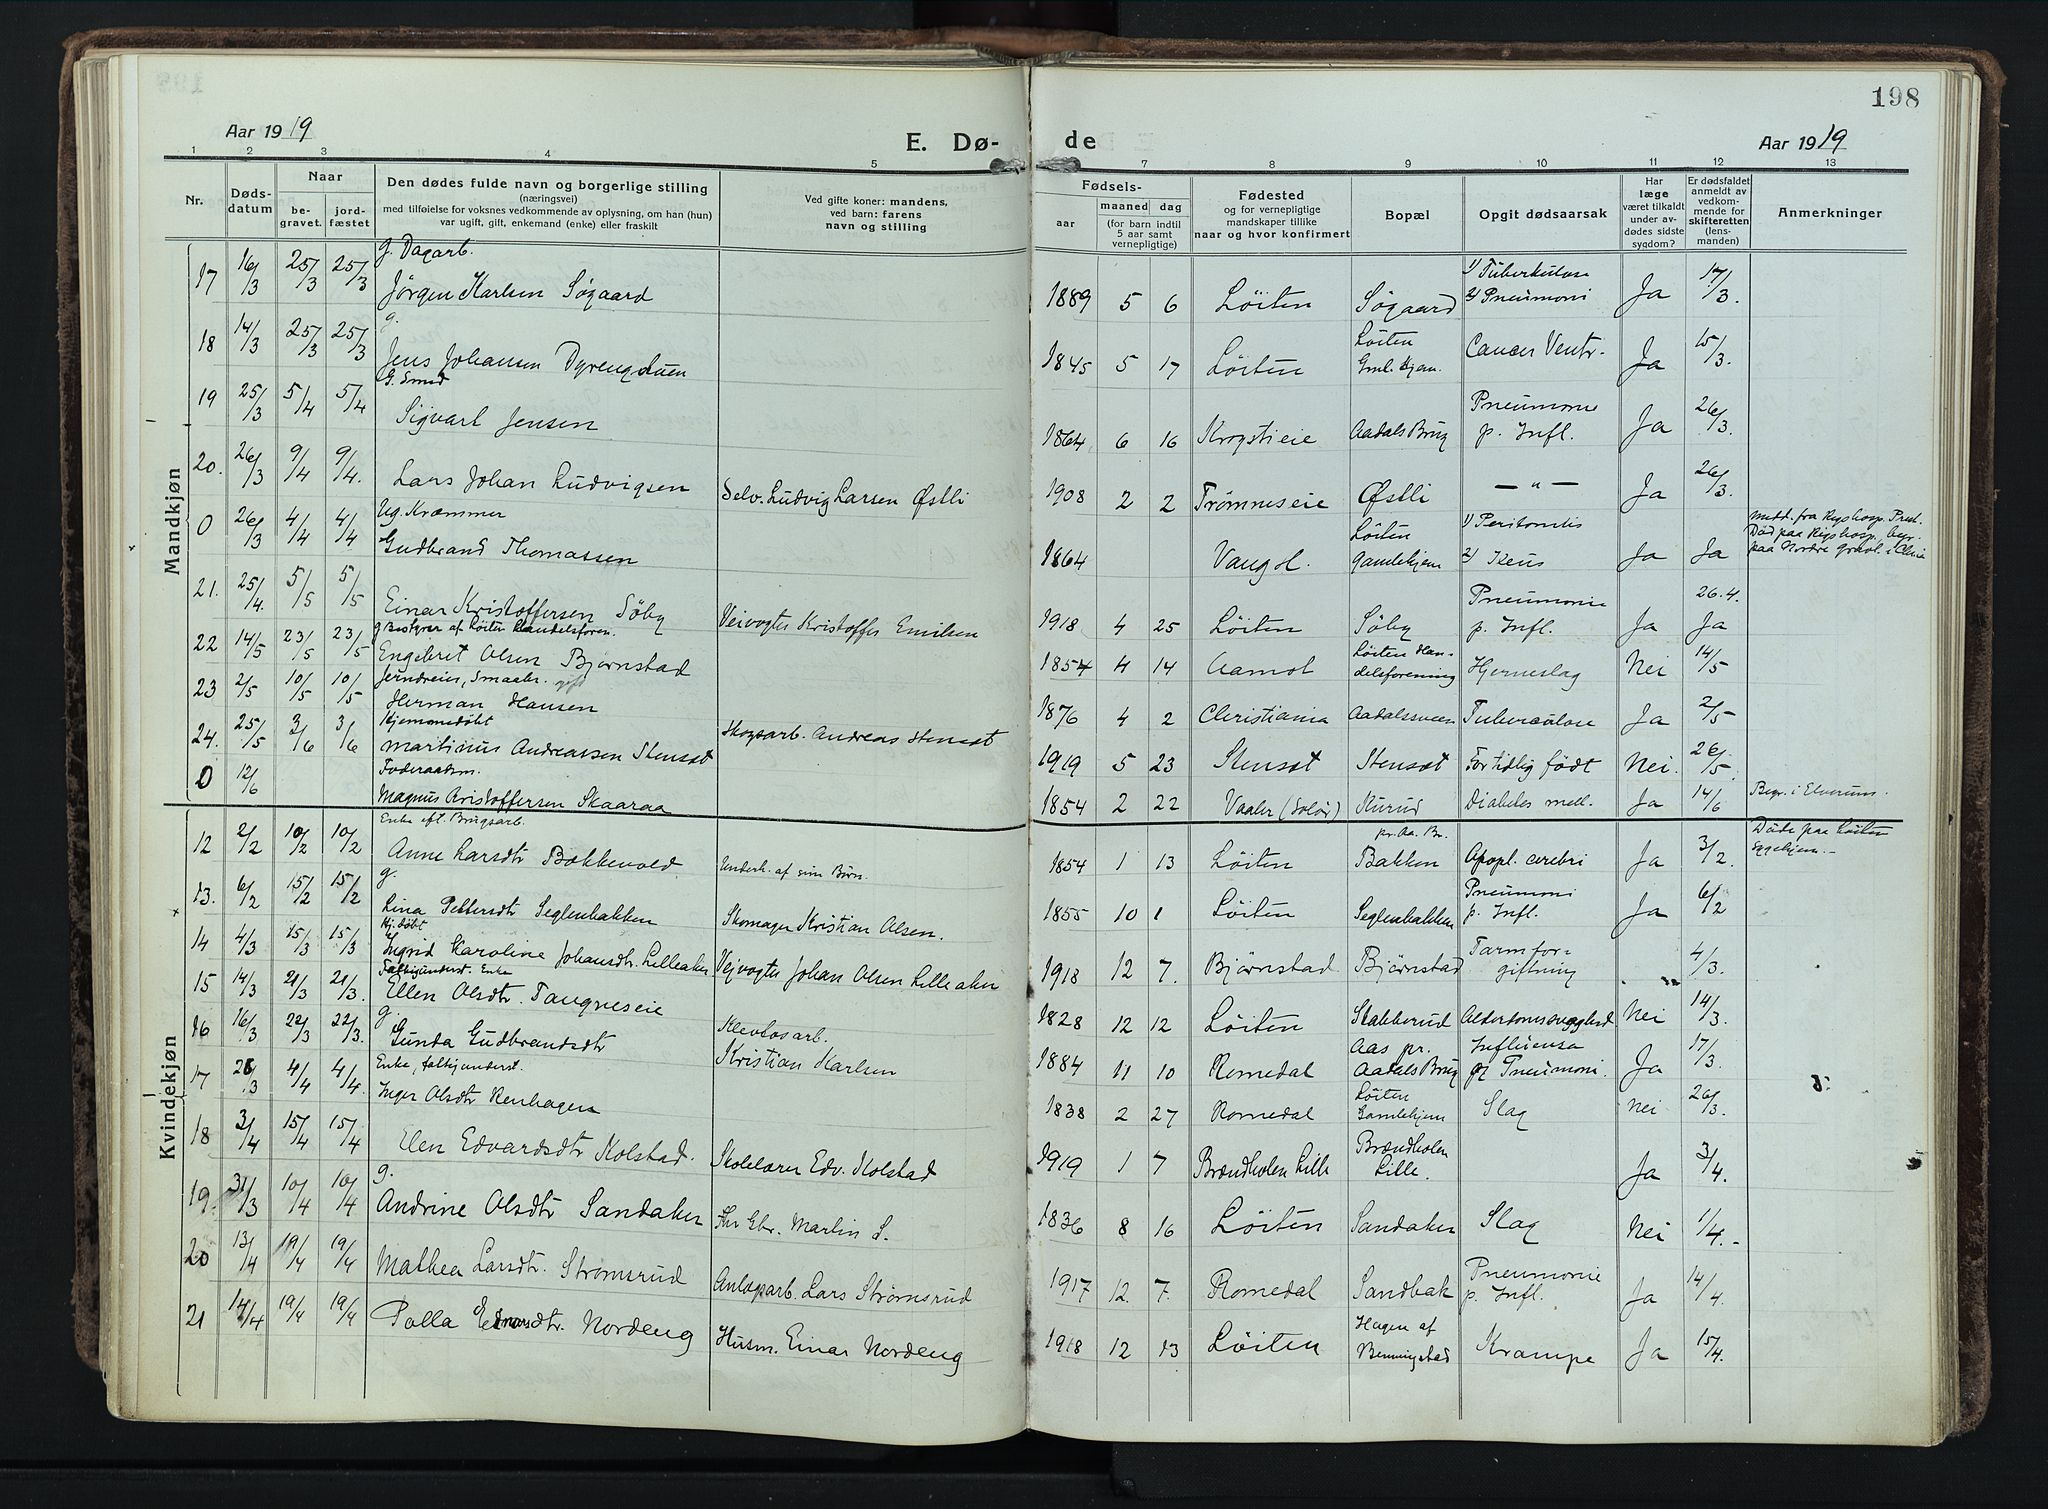 198
Aar 1919
E. Dø-
de
Aar 1919
1 2 3 4 5 7 8 9 10 11 12 13
Nr.
Døds-
datum
Naar
be-
gravet.
jord-
fæstet
Den dødes fulde navn og borgerlige stilling
(næringsvei)
med tilføielse for voksnes vedkommende av oplysning, om han (hun)
var ugift, gift, enkemand (enke) eller fraskilt
Ved gifte koner: mandens,
ved barn: farens
navn og stilling
Fødsels-
aar
maaned dag
(for barn indtil
5 aar samt
vernepligtige)
Fødested
og for vernepligtige
mandskaper tillike
naar og hvor konfirmert
Bopæl
Opgit dødsaarsak
Har
læge
været tilkaldt
under av-
dødes sidste
sygdom?
Er dødsfaldet
anmeldt av
vedkom-
mende for
skifteretten
(lens-
manden)
Anmerkninger
Mandkjøn
g. Dagarb.
17 16/3 25/3 25/3 Jørgen Karlsen Søgaard 1889 5 6 Löiten Søgaard 1) Tuberkulose 2) Pneumoni Ja 17/3.
g.
18 14/3 25/3 25/3 Jens Johansen Dyrengduen 1845 5 17 Löiten Löiten Gml. Hjem. Cancer Ventr. Ja 15/3.
G. Smed
19 25/3 5/4 5/4 Sigvart Jensen 1864 6 16 Krogstieie Aadals Brug Pneumonie p. Infl. Ja 26/3.
20. 26/3 9/4 9/4. Lars Johan Ludvigsen Selv. Ludvig Larsen Østli 1908 2 2 Trømneseie Østli — " — Ja 26/3.
Ug. Kræmmer
0 26/3 4/4 4/4 Gudbrand Thomassen 1864 Vang H. Löiten gamlehjem 1) Peritonitis 2) Ileus Ja Ja Medd. fra Rigshosp. Prest. Död paa Rigshosp. begr. paa Nordre gravl. i Chria
21. 25/4. 5/5 5/5 Einar Kristoffersen Söby Veivogter Kristoffer Emilsen 1918 4 25 Löiten Söby Pneumonie p. Infl. Ja 26.4. Ja
g Bestyrer af Löiten Handelsforen.
22 14/5 23/5 23/5 Engebret Olsen Bjørnstad 1854 4 14 Aamot Löiten Han- delsforening Hjerneslag Nei 14/5
Jerndreier, Smaabr. gift
23 2/5 10/5 10/5 Herman Hansen 1876 4 2 Christiania Aadalssveen Tuberculose Ja 2/5
Hjemmedøbt
24. 25/5 3/6 3/6 Martinus Andreassen Stensæt Skogsarb. Andreas Stensæt 1919 5 23 Stensæt Stensæt For tidlig født Nei. 26/5.
Föderaadsm.
0 12/6 Magnus Kristoffersen Skaaraa 1854 2 22 Vaaler (Solör) Kurud Diabetes mell. Ja 14/6 Begr. i Elverum.
Kvindekjøn
Enke eft. Brugsarb.
12 2/2 10/2 10/2 Anne Larsdtr Bækkevold. Underh. af sine Børn. 1854 1 13 Löiten pr. Aa. Br. Bakken Apopl. cerebri Ja 3/2. Døde paa Löiten Sygehjem.
g.
13. 6/2 15/2 15/2 Lina Pettersdtr Seglenbakken Skomager Kristian Olsen. 1855 10 1 Löiten Seglenbakken Pneumoni p. Infl. Ja 6/2
Hj. døbt
14 4/3 15/3 15/3 Ingrid Karoline Johansdtr. Lilleaker Veivogter Johan Olsen Lilleaker 1918 12 7. Bjørnstad Bjørnstad Tarmfor- giftning 4/3.
Fattigunderst. Enke
15 14/3 21/3 21/3. Ellen Olsdtr. Tangneseie 1828 12 12 Löiten Stakkerud Alderdomssvaghed Nei 14/3.
g.
16 16/3 22/3 22/3. Gunda Gudbrandsdtr Klevfosarb. Kristian Karlsen 1884 11 10 Romedal Aas pr. Aadals Brug Influensa og Pneumoni. Ja 17/3.
Enke, fattigunderst.
17 26/3 4/4 4/4. Inger Olsdtr Renhagen 1838 2 27 Romedal Löiten Gamlehjem Slag Nei 26/3.
18 3/4 15/4 15/4 Elen Edvardsdtr Kolstad. Skolelærer Edv. Kolstad 1919 1 7 Brændholen Lille Brændholen Lille. Ja 3/4.
g.
19. 31/3 10/4 10/4 Andrine Olsdtr Sandaker Fhr Gbr. Martin S. 1836 8 16 Löiten Sandaker Slag Nei 1/4.
20 13/4 19/4 19/4 Mathea Larsdtr. Strømsrud Anlægarb. Lars Strømsrud 1917 12. 7. Romedal Sandbak Pneumonie p. Infl. Ja 14/4.
21 14/4 19/4 19/4 Palla Nordeng Husm. Einar Nordeng 1918 12 13 Löiten Hagen af Benningstad Krampe Ja 15/4.